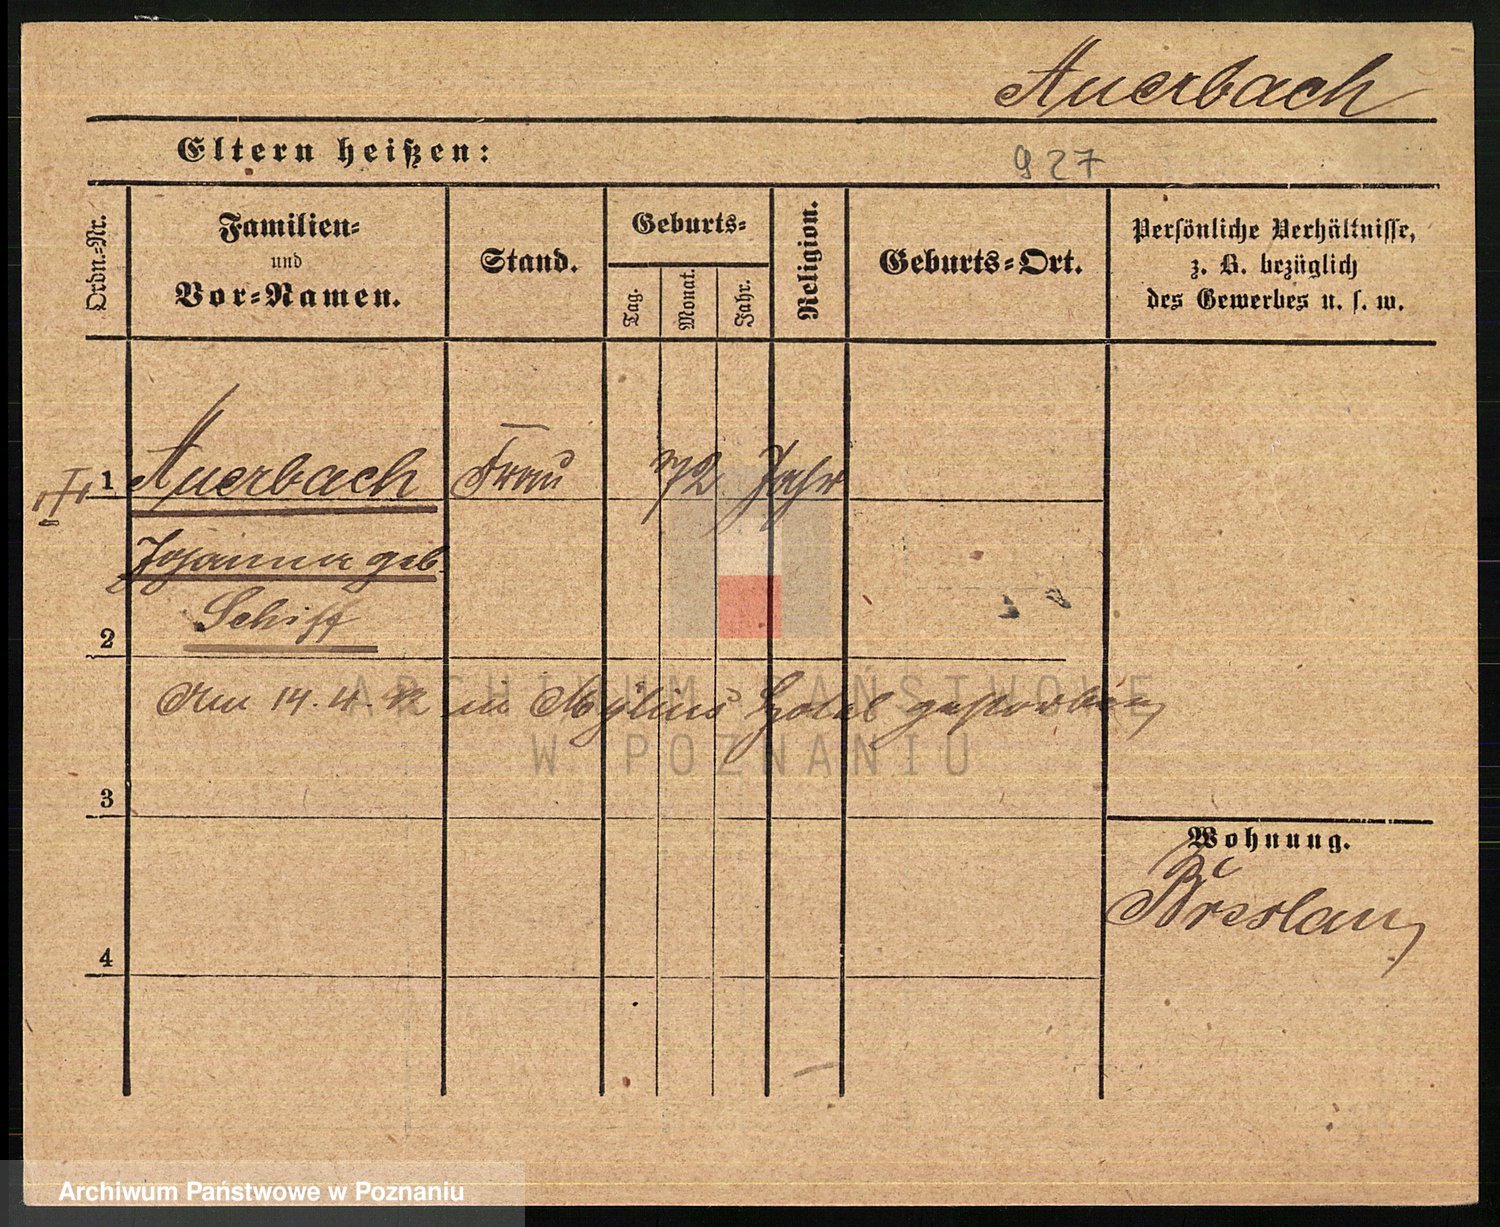 Auerbach
Eltern heißen:
927
Ordn.=Nr.
Familien=
und
Vor=Namen.
Stand.
Geburts=
Tag.
Monat.
Jahr.
Religion.
Geburts=Ort.
Persönliche Verhältnisse,
z. B. bezüglich
des Gewerbes u. s. w.
1
Auerbach
Frau
72 Jahr
Johanna geb.
Schiff
2
Am 14. 4. in Mylius Hotel gestorben
ARCHIWUM PAŃSTWOWE
W POZNANIU
3
Wohnung.
Breslau
4
Archiwum Państwowe w Poznaniu